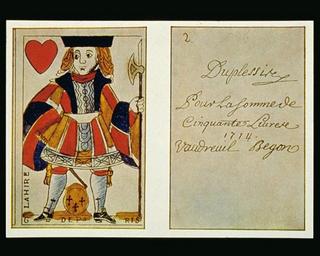 LAHIRE
2
Duplessis
Pour La Somme de
Cinquante Livres
1714
Vaudreuil Begon